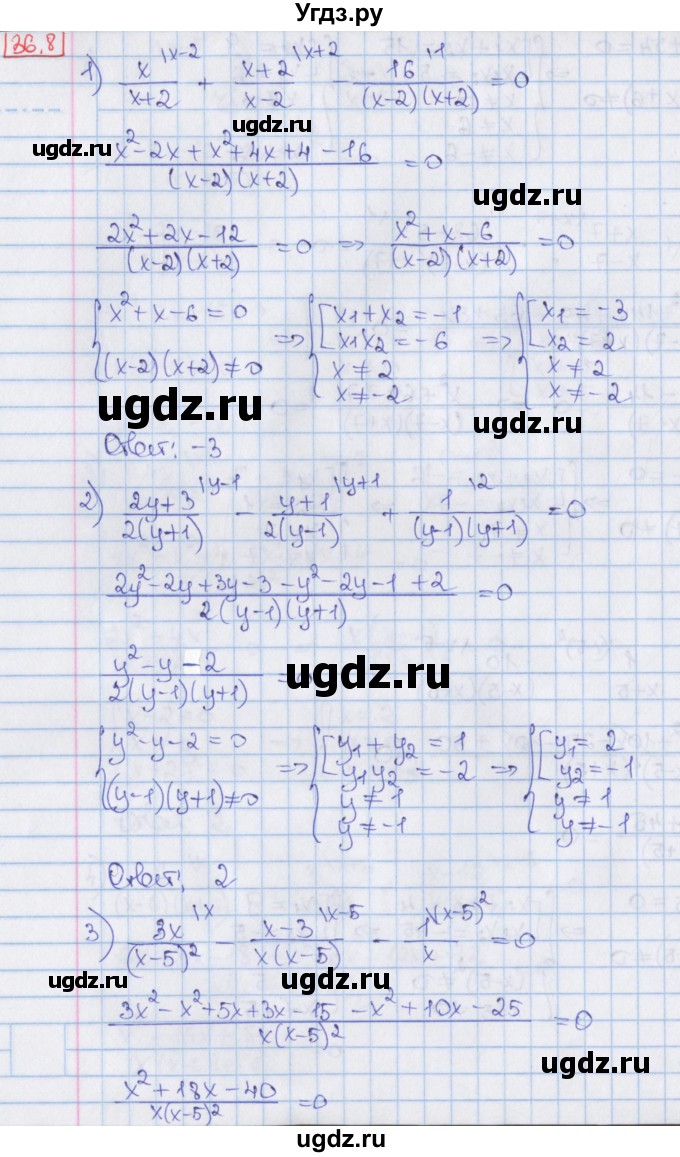 Угдз.ру
36.8
1) x/(x+2) |x-2 + (x+2)/(x-2) |x+2 - 16/((x-2)(x+2)) |1 = 0
ugdz.ru
ugdz.ru
(x²-2x+x²+4x+4-16)/((x-2)(x+2)) = 0
ugdz.ru
(2x²+2x-12)/((x-2)(x+2)) = 0 => (x²+x-6)/((x-2)(x+2)) = 0
{ x²+x-6=0 => { [ x₁+x₂=-1 => { [ x₁=-3
x₁x₂=-6 x₂=2
(x-2)(x+2)≠0 x≠2 x≠2
x≠-2 x≠-2
ugdz.ru
ugdz.ru
Ответ: -3
2) (2y+3)/(2(y+1)) |y-1 - (y+1)/(2(y-1)) |y+1 + 1/((y-1)(y+1)) |2 = 0
ugdz.ru
(2y²-2y+3y-3-y²-2y-1+2)/(2(y-1)(y+1)) = 0
ugdz.ru
ugdz.ru
(y²-y-2)/(2(y-1)(y+1)) = 0
{ y²-y-2=0 => { [ y₁+y₂=1 => { [ y₁=2
y₁y₂=-2 y₂=-1
(y-1)(y+1)≠0 y≠1 y≠1
y≠-1 y≠-1
ugdz.ru
ugdz.ru
Ответ: 2
3) 3x/(x-5)² |x - (x-3)/(x(x-5)) |x-5 - 1/x |(x-5)² = 0
ugdz.ru
ugdz.ru
(3x²-x²+5x+3x-15-x²+10x-25)/(x(x-5)²) = 0
ugdz.ru
(x²+18x-40)/(x(x-5)²) = 0
ugdz.ru